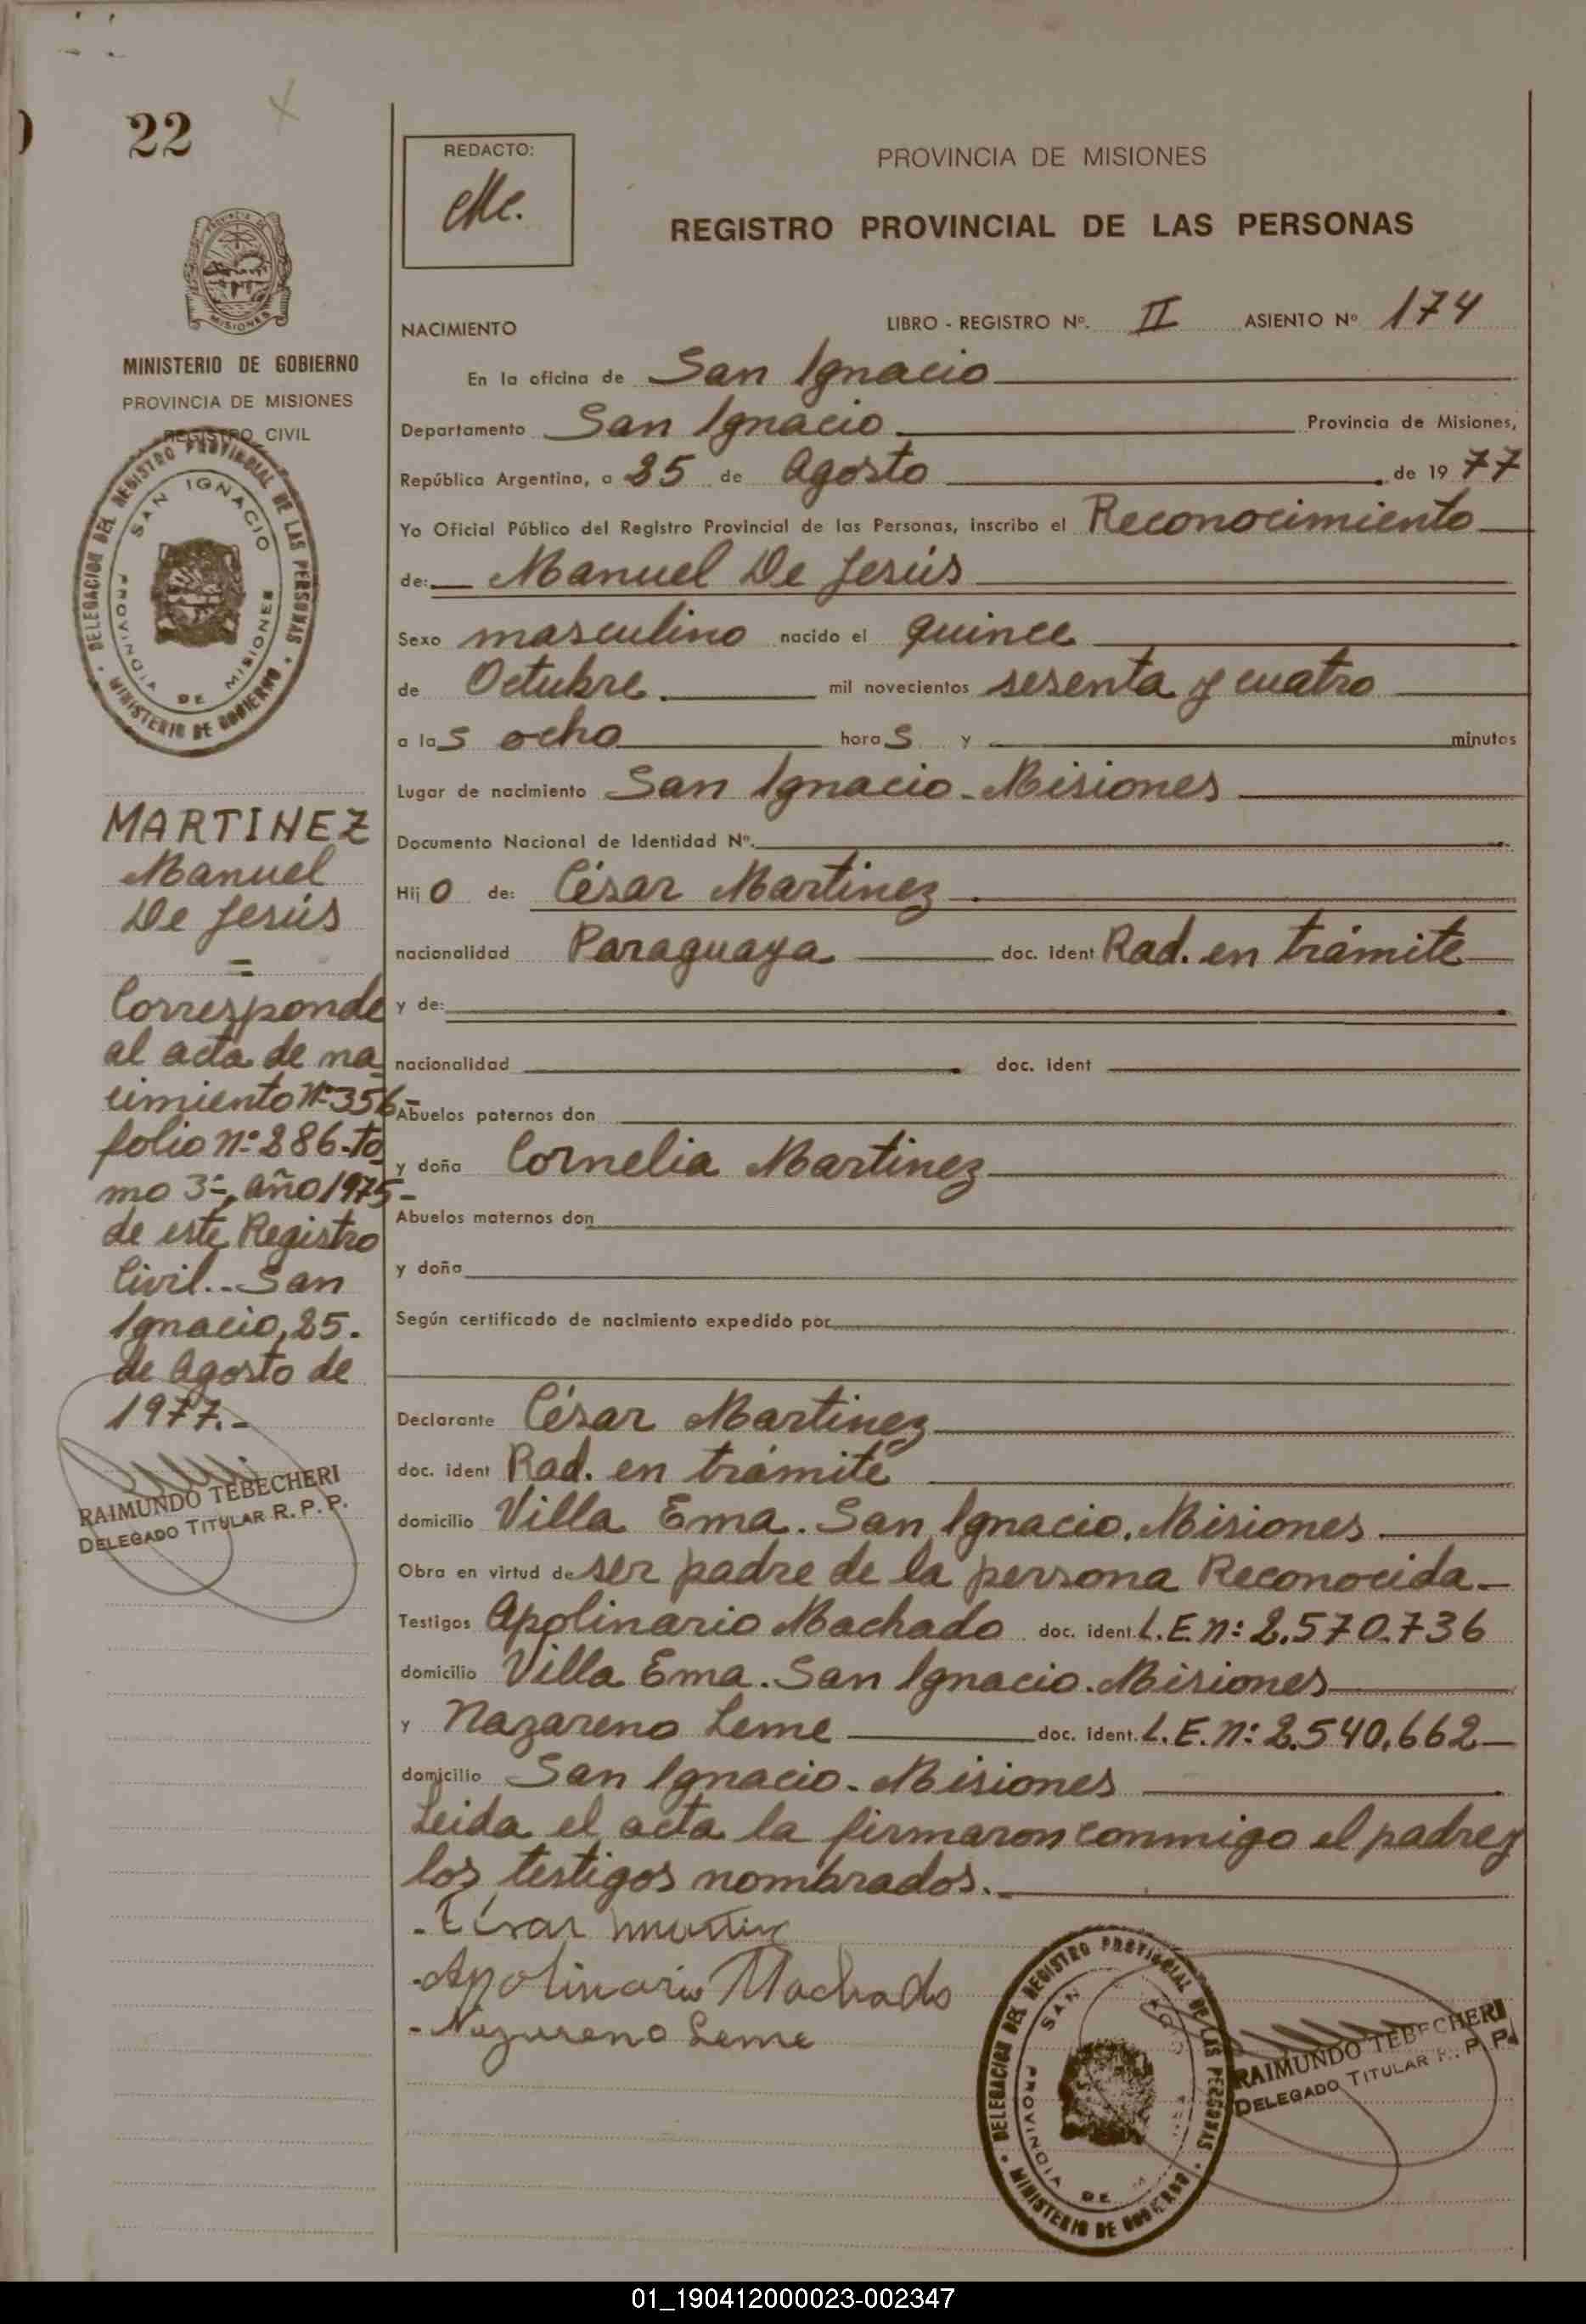 22
MINISTERIO DE GOBIERNO
PROVINCIA DE MISIONES
REGISTRO CIVIL
DELEGACION DEL REGISTRO PROVINCIAL DE LAS PERSONAS
MINISTERIO DE GOBIERNO
SAN IGNACIO
PROVINCIA DE MISIONES
MARTINEZ
Manuel
De Jesús
=
Corresponde
al acta de na
cimiento Nº 356-
folio nº 286-to
mo 3º, año 1975-
de este Registro
Civil.- San
Ignacio, 25.
de Agosto de
1977.-
RAIMUNDO TEBECHERI
DELEGADO TITULAR R. P. P.
REDACTO:
PROVINCIA DE MISIONES
REGISTRO PROVINCIAL DE LAS PERSONAS
NACIMIENTO LIBRO - REGISTRO Nº. II ASIENTO Nº 174
En la oficina de San Ignacio
Departamento San Ignacio Provincia de Misiones,
República Argentina, a 25 de Agosto de 1977
Yo Oficial Público del Registro Provincial de las Personas, inscribo el Reconocimiento
de: Manuel De Jesús
Sexo masculino nacido el quince
de Octubre. mil novecientos sesenta y cuatro
a las ocho horas y minutos
Lugar de nacimiento San Ignacio - Misiones
Documento Nacional de Identidad Nº.
Hijo de: César Martinez
nacionalidad Paraguaya doc. ident Rad. en trámite
y de:
nacionalidad doc. ident
Abuelos paternos don
y doña Cornelia Martinez
Abuelos maternos don
y doña
Según certificado de nacimiento expedido por
Declarante César Martinez
doc. ident Rad. en trámite
domicilio Villa Ema. San Ignacio. Misiones
Obra en virtud de ser padre de la persona Reconocida.-
Testigos Apolinario Machado doc. ident. L.E. n: 2.570.736
domicilio Villa Ema. San Ignacio. Misiones
y Nazareno Leme doc. ident. L.E. n: 2.540.662
domicilio San Ignacio - Misiones
Leida el acta la firmaron conmigo el padre y
los testigos nombrados.-
- César
- Apolinario Machado
- Nazareno Leme
DELEGACION DEL REGISTRO PROVINCIAL DE LAS PERSONAS
MINISTERIO DE GOBIERNO
SAN
PROVINCIA DE
RAIMUNDO TEBECHERI
DELEGADO TITULAR R. P. P.
01_190412000023-002347